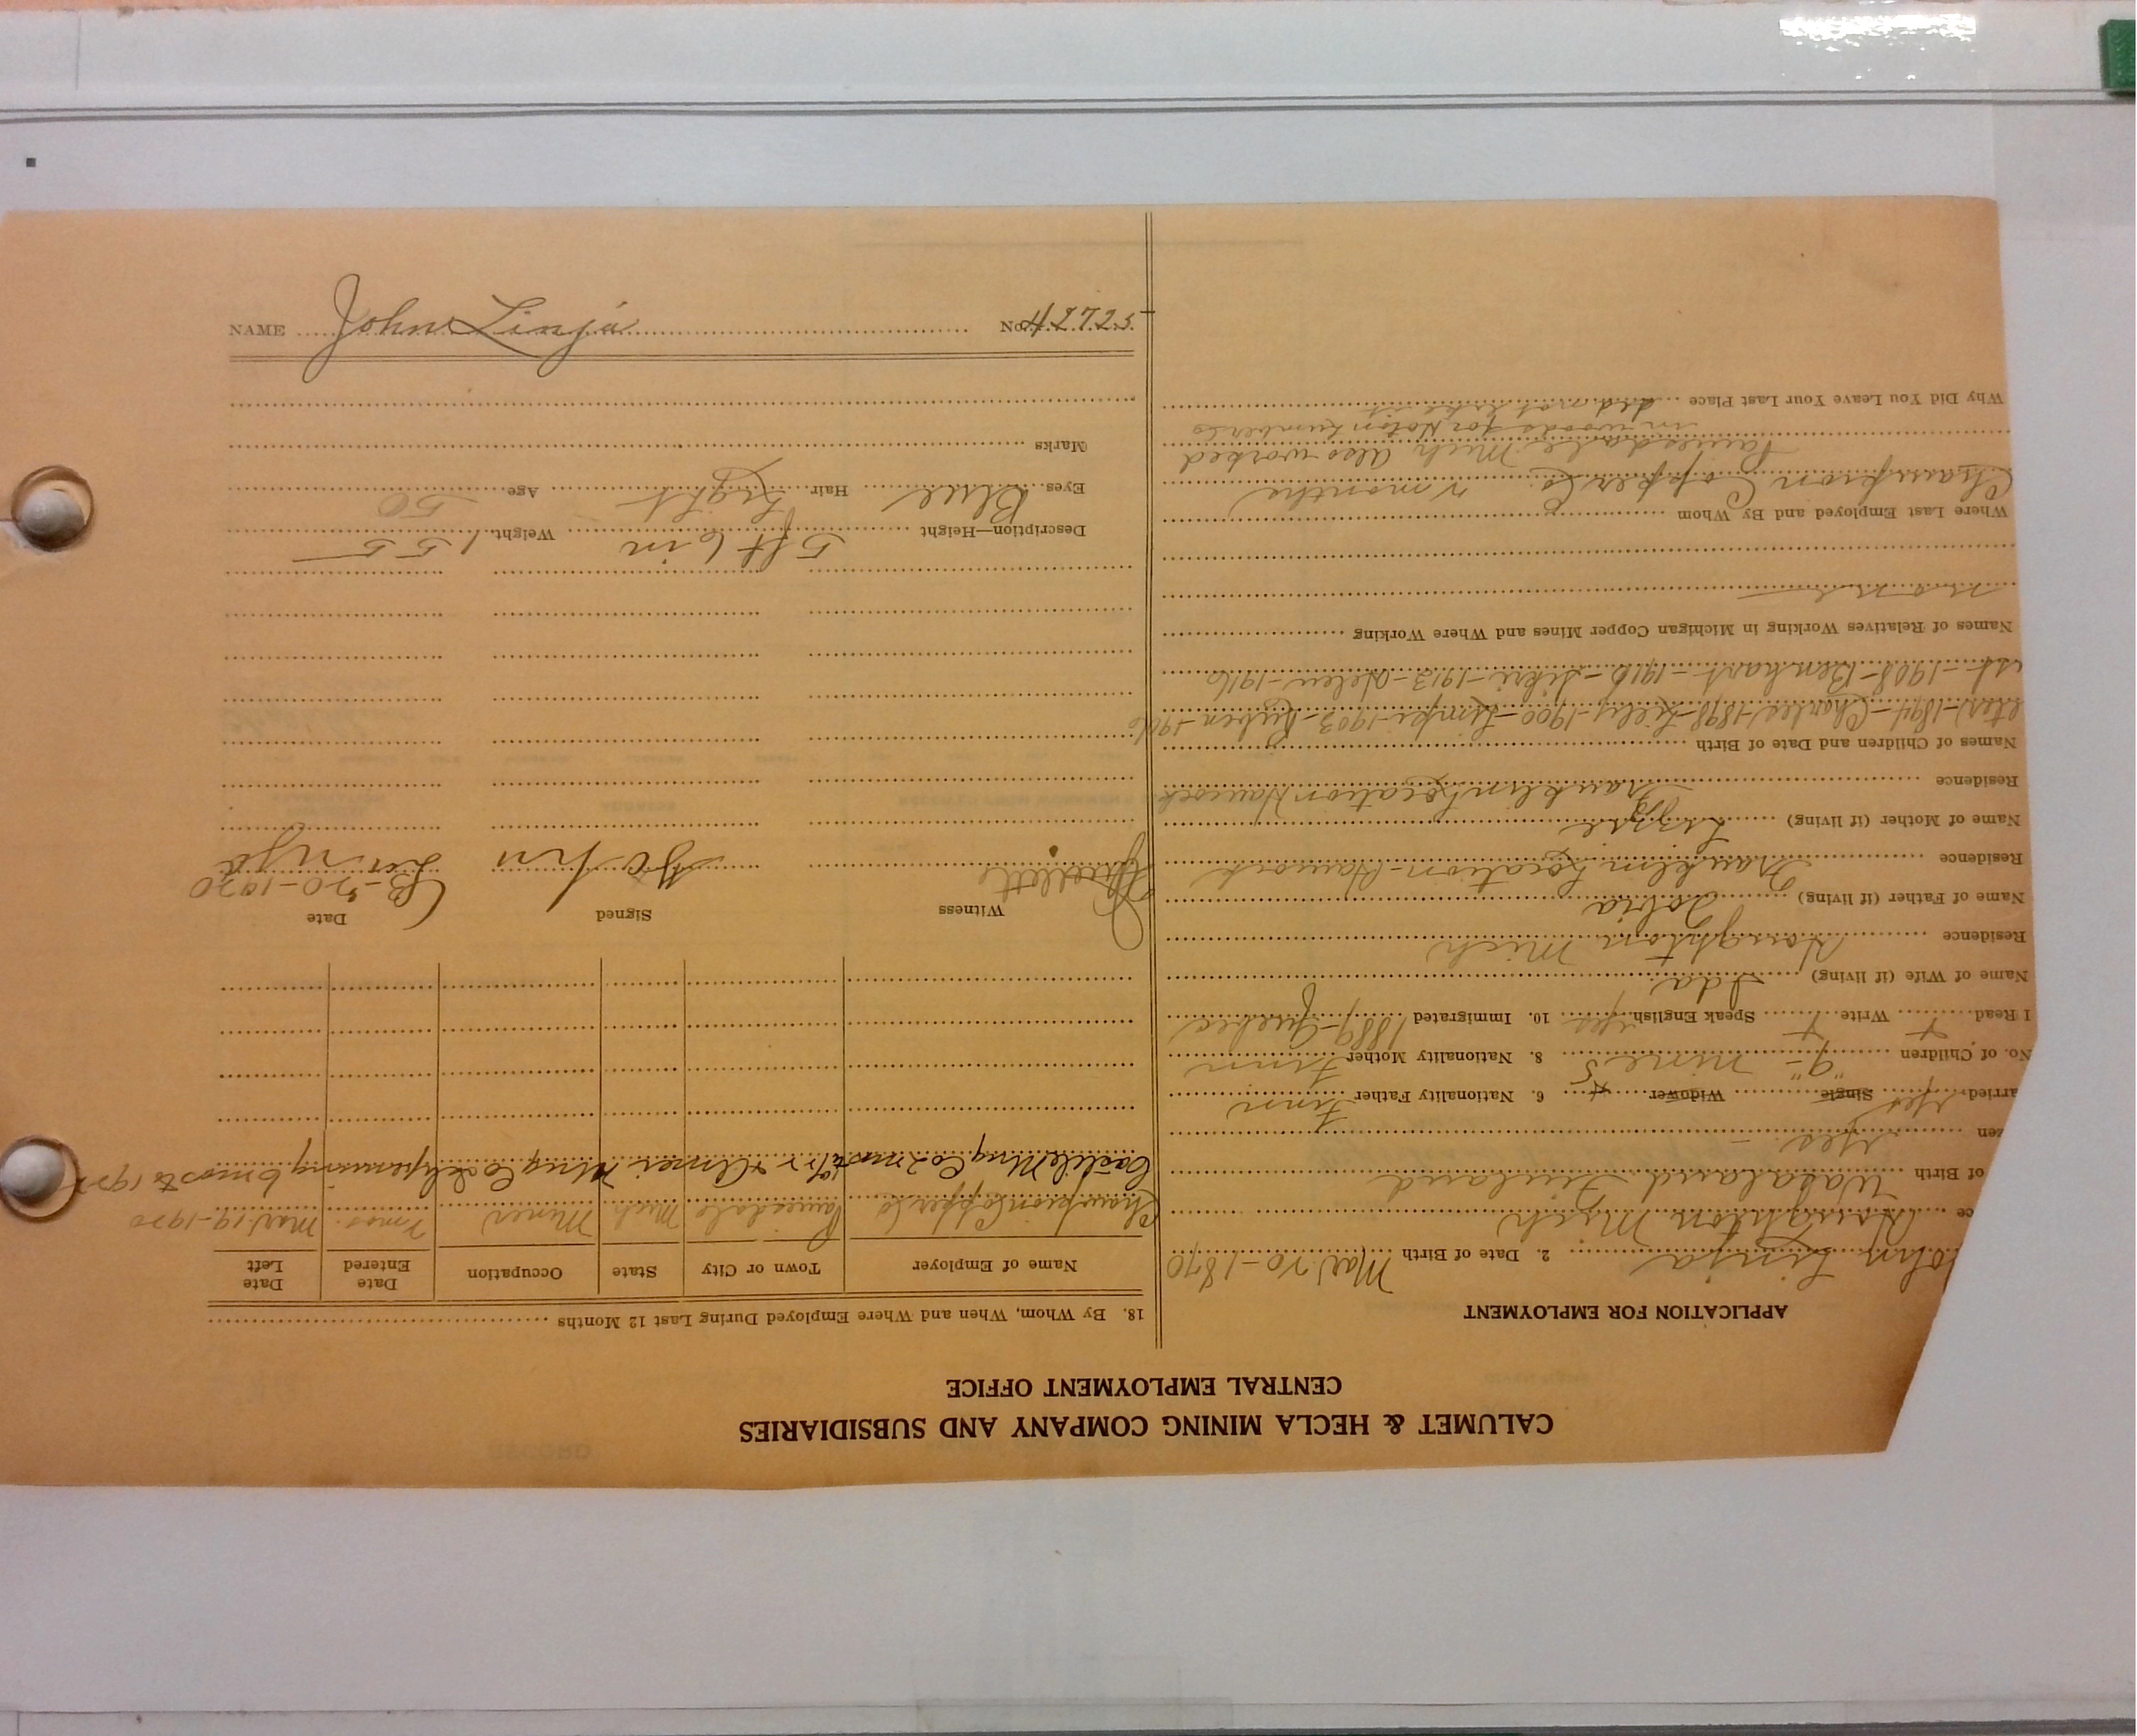 CALUMET & HECLA MINING COMPANY AND SUBSIDIARIES
CENTRAL EMPLOYMENT OFFICE
APPLICATION FOR EMPLOYMENT
ohn Linja 2. Date of Birth Mar 20-1870
ce Houghton Mich
of Birth Wasaland Finland
zen Yes
arried Yes Single Widower 6. Nationality Father Finn
No. of Children "9" nine 8. Nationality Mother Finn
I Read Write Speak English yes 10. Immigrated 1889-Quebec
Name of Wife (if living) Ida
Residence Houghton Mich
Name of Father (if living)
Residence Franklin Location-Hancock
Name of Mother (if living) Lizzie
Residence Franklin Location Hancock
Names of Children and Date of Birth
1894-Charles-1898-Lily-1900-Limpi-1903-Ruben-1906
1908-Bernhart-1910-Sikri-1913-Helen-1916
Names of Relatives Working in Michigan Copper Mines and Where Working
none
Where Last Employed and By Whom
Champion Copper Co. months
Painesdale Mich Also worked
in woods for
Why Did You Leave Your Last Place did not like it
18. By Whom, When and Where Employed During Last 12 Months
Name of Employer Town or City State Occupation Date Entered Date Left
Champion Copper Co Painesdale Mich Miner mos. Mar 19-1920
Mng Co 2 mos Mng Co Ishpeming 6 mos
Witness Signed Date
John Linja 3-20-1920
Description—Height 5 ft 6 in Weight 155
Eyes Blue Hair Light Age 50
Marks
NAME John Linja No. 42725